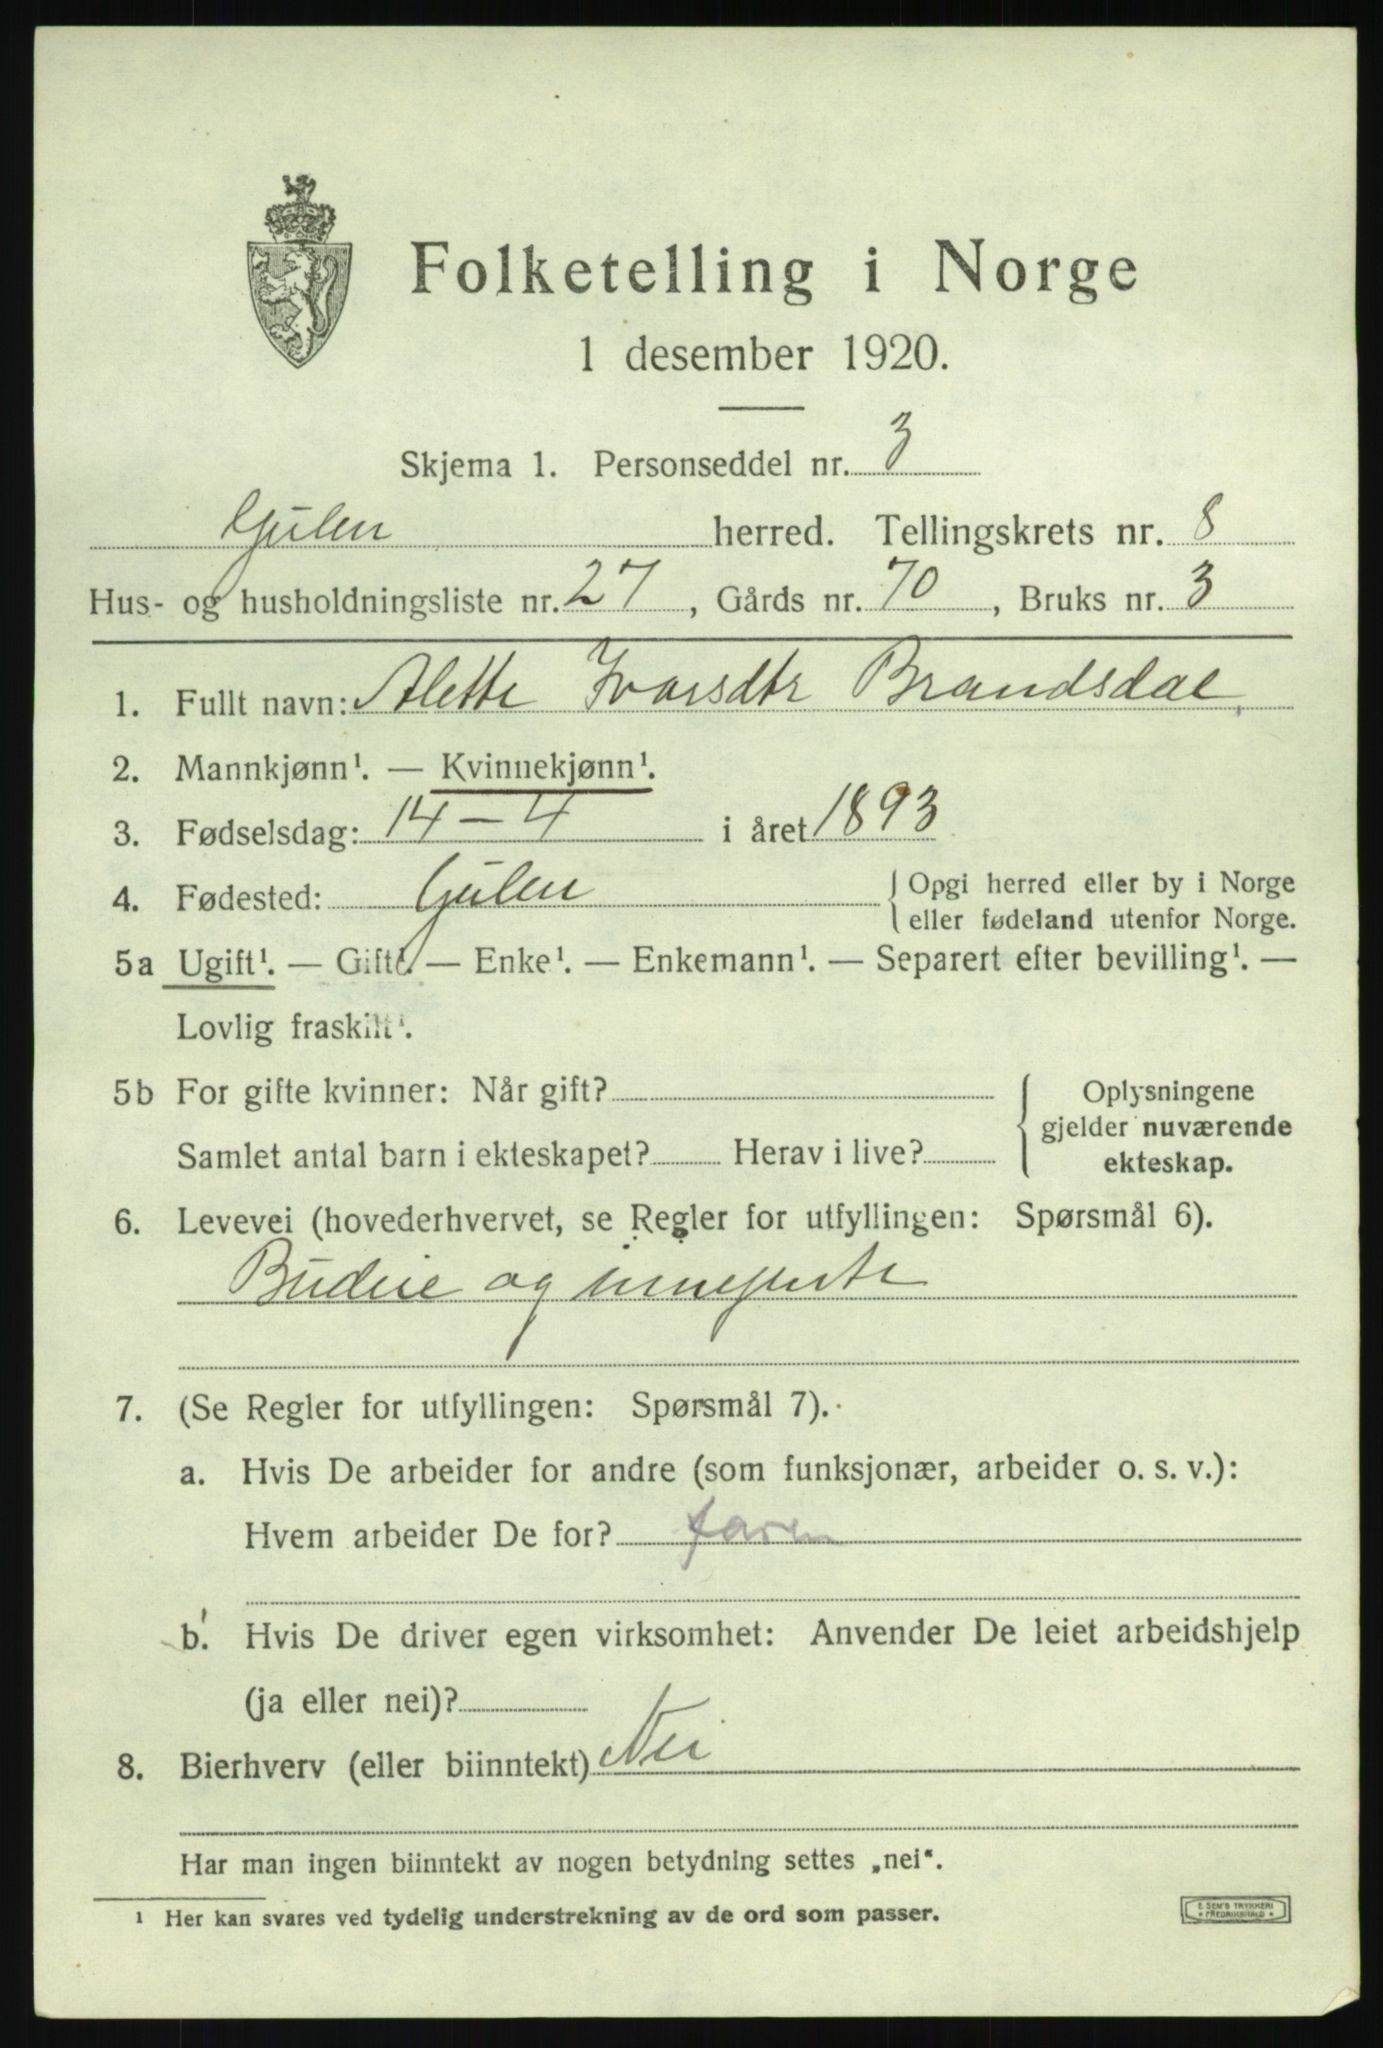 Folketelling i Norge
1 desember 1920.
Skjema 1. Personseddel nr. 3
Gulen herred. Tellingskrets nr. 8
Hus- og husholdningsliste nr. 27, Gårds nr. 70, Bruks nr. 3
1. Fullt navn: Alette Ivarsdtr Brandsdal
2. Mannkjønn¹. — Kvinnekjønn¹.
3. Fødselsdag: 14 – 4 i året 1893
4. Fødested: Gulen { Opgi herred eller by i Norge
eller fødeland utenfor Norge.
5a Ugift¹. — Gift¹. — Enke¹. — Enkemann¹. — Separert efter bevilling¹. —
Lovlig fraskilt¹.
5b For gifte kvinner: Når gift? { Oplysningene
gjelder nuværende
Samlet antal barn i ekteskapet? Herav i live? ekteskap.
6. Levevei (hovederhvervet, se Regler for utfyllingen: Spørsmål 6).
Budeie og innejente
7. (Se Regler for utfyllingen: Spørsmål 7).
a. Hvis De arbeider for andre (som funksjonær, arbeider o. s. v.):
Hvem arbeider De for? faren
b. Hvis De driver egen virksomhet: Anvender De leiet arbeidshjelp
(ja eller nei)?
8. Bierhverv (eller biinntekt) Nei
Har man ingen biinntekt av nogen betydning settes „nei“.
¹ Her kan svares ved tydelig understrekning av de ord som passer.
E. SEM'S TRYKKERI
* FREDRIKSHALD *